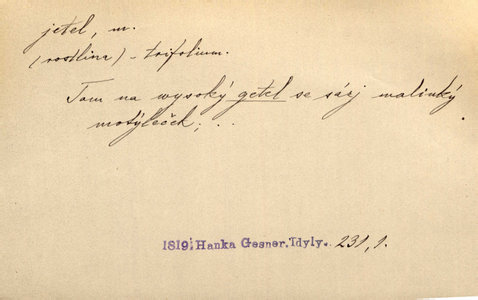 jetel, m.
(rostlina) - trifolium.
Tam na wysoký getel se sázj malinký
motýleček; . .
1819: Hanka Gesner. Idyly. 231, 1.